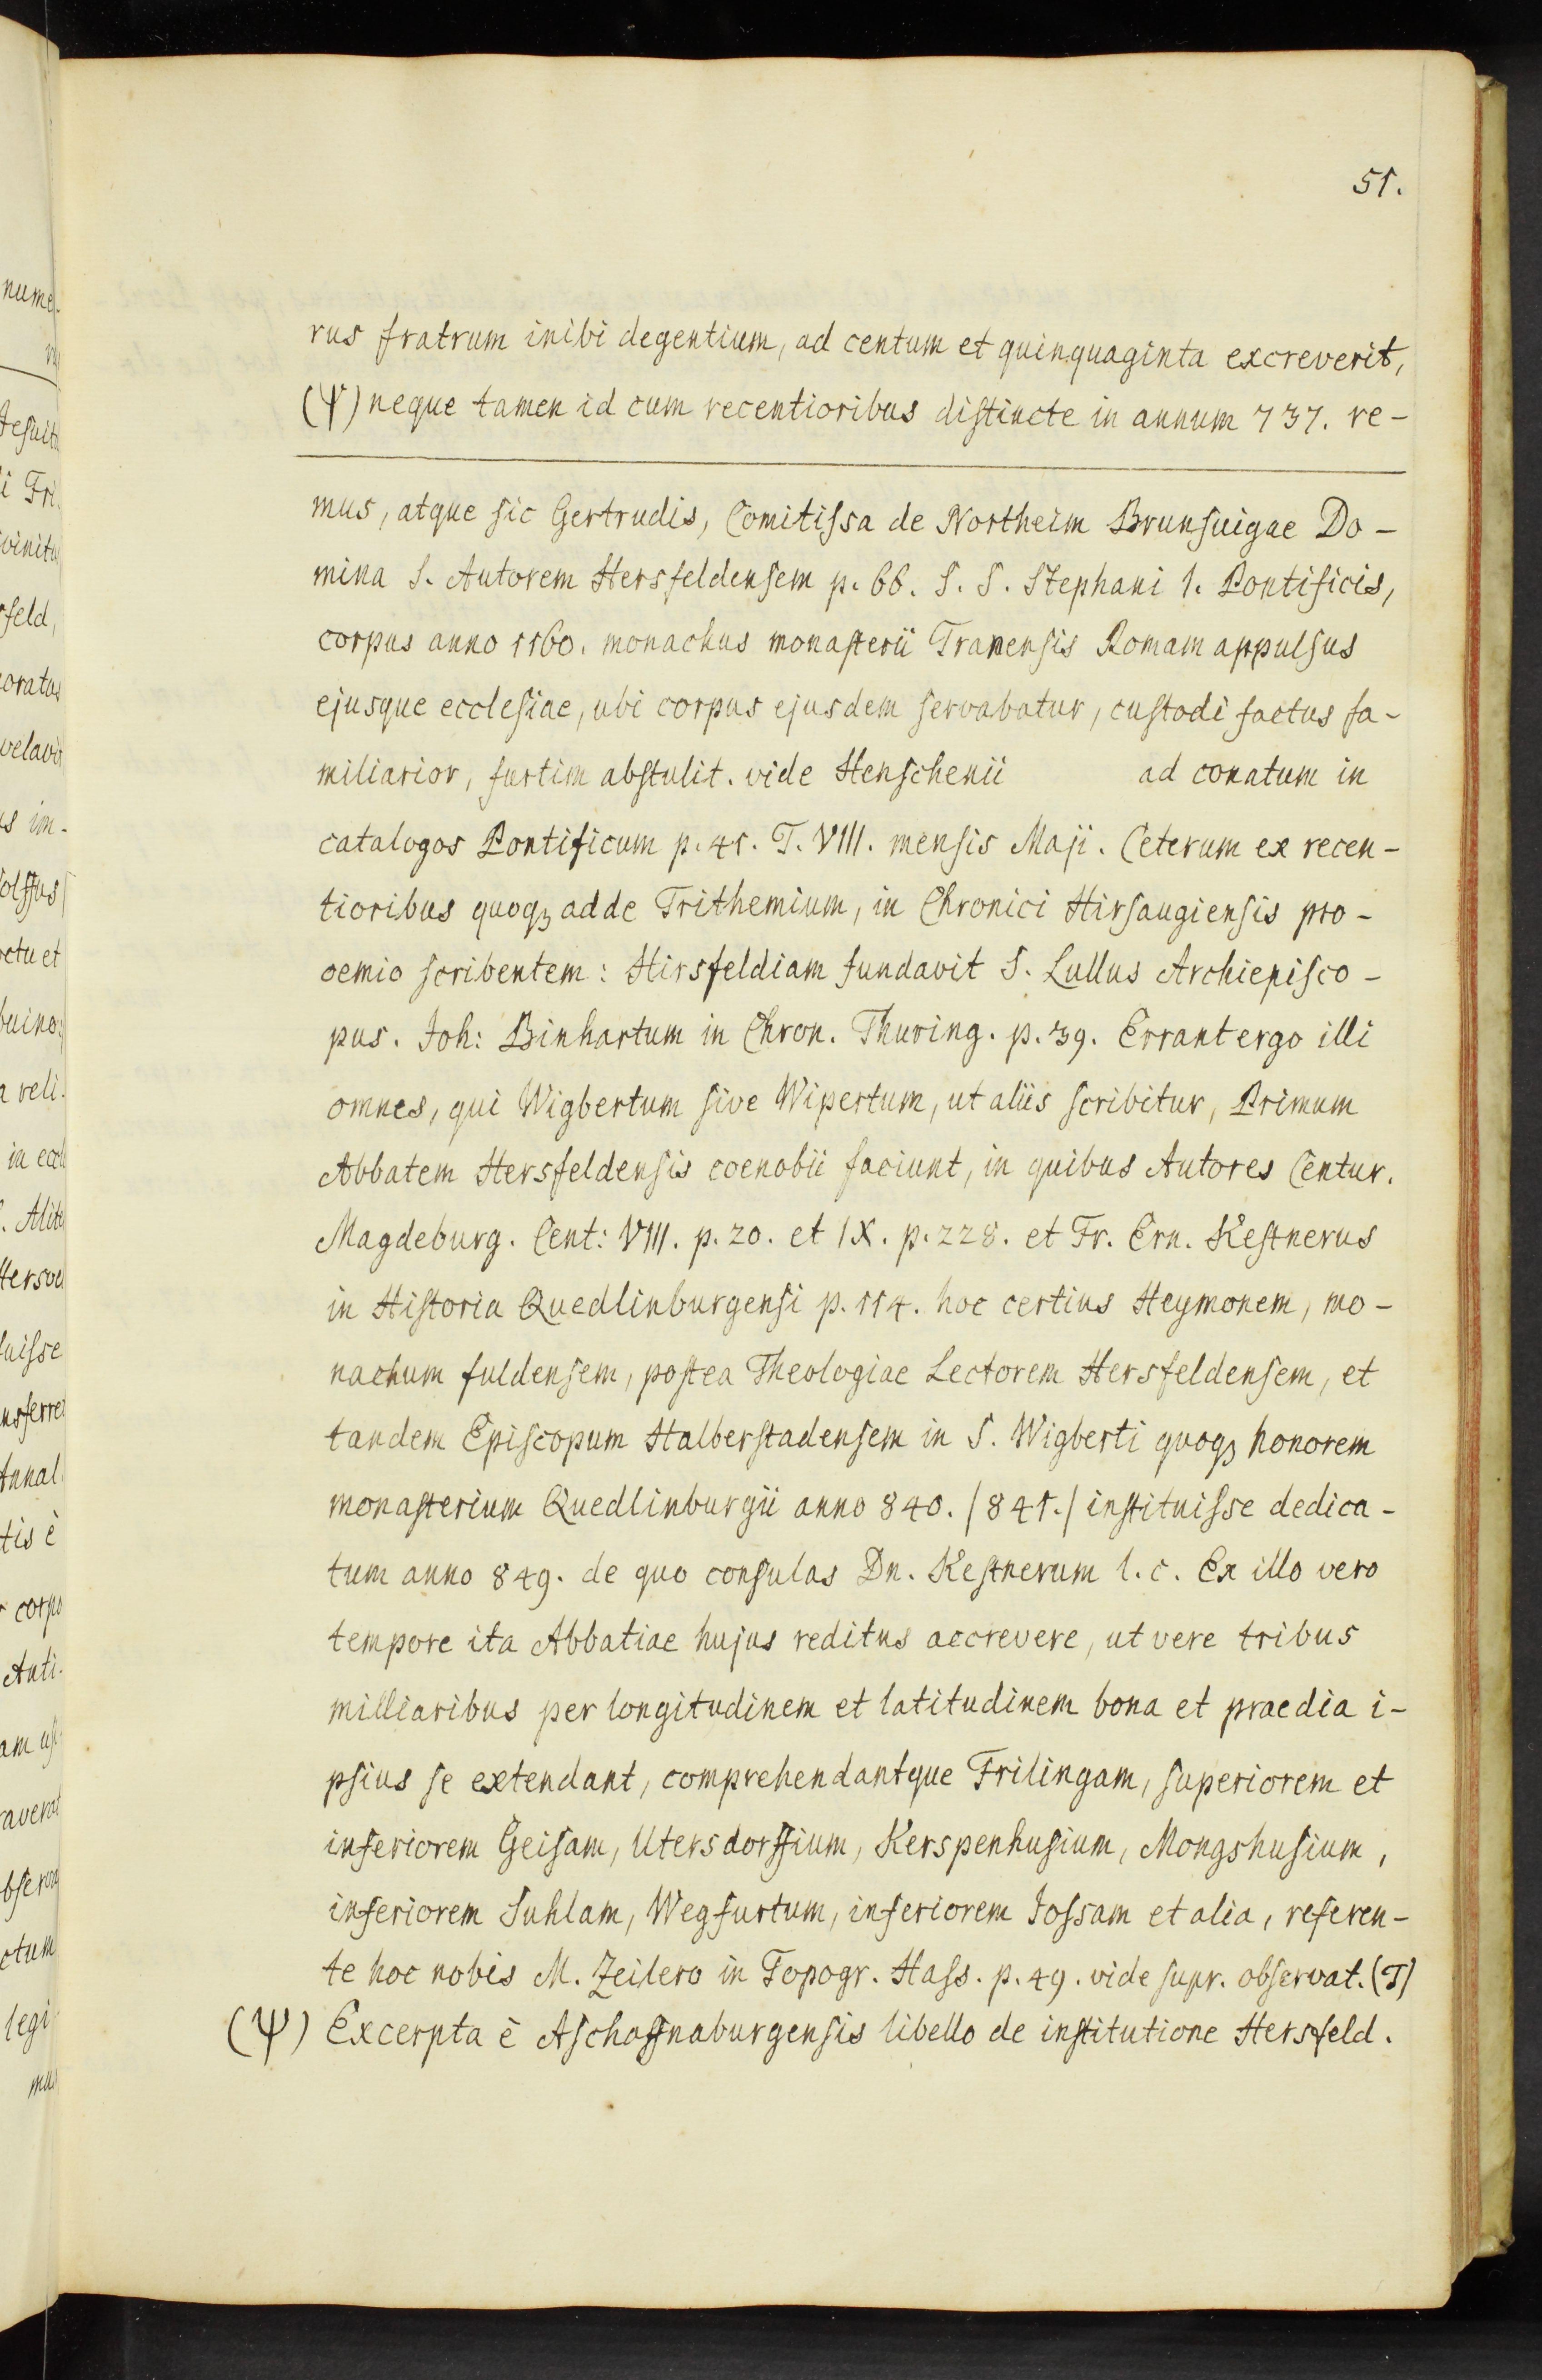 51.
rus fratrum inibi degentium, ad centum et quinquaginta excreverit,
(Ψ) neque tamen id cum recentioribus distincte in annum 737. re-
mus, atque sic Gertrudis, Comitissa de Northeim Brunsuigae Do-
mina S. Autorem Hersfeldensem p. 66. S. S. Stephani 1. Pontificis,
corpus anno 1160. monachus monasterii Tranensis Romam appulsus
ejusque ecclesiae, ubi corpus ejusdem servabatur, custodi factus fa-
miliarior, furtim abstulit. vide Henschenii ad conatum in
catalogos Pontificum p. 41. T. VIII. mensis Maji. Ceterum ex recen-
tioribus quoqꝫ adde Trithemium, in Chronici Hirsaugiensis pro-
oemio scribentem: Hirsfeldiam fundavit S. Lullus Archiepisco-
pus. Joh: Binhartum in Chron. Thuring. p. 39. Errant ergo illi
omnes, qui Wigbertum sive Wipertum, ut aliis scribitur, Primum
Abbatem Hersfeldensis coenobii faciunt, in quibus Autores Centur.
Magdeburg. Cent: VIII. p. 20. et IX. p. 228. et Fr. Ern. Kestnerus
in Historia Quedlinburgensi p. 114. hoc certius Heymonem, mo-
nachum fuldensem, postea Theologiae Lectorem Hersfeldensem, et
tandem Episcopum Halberstadensem in S. Wigberti quoqꝫ honorem
monasterium Quedlinburgii anno 840. /841./ instituisse dedica-
tum anno 849. de quo consulas Dn. Kestnerum l. c. Ex illo vero
tempore ita Abbatiae hujus reditus accrevere, ut vere tribus
milliaribus per longitudinem et latitudinem bona et praedia i-
psius se extendant, comprehendantque Frilingam, superiorem et
inferiorem Geisam, Utersdorffium, Kerspenhusium, Mongshusium,
inferiorem Suhlam, Wegfurtum, inferiorem Jossam et alia, referen-
te hoc nobis M. Zeilero in Topogr. Hass. p. 49. vide supr. observat. (T)
(Ψ) Excerpta è Aschaffnaburgensis libello de institutione Hersfeld.